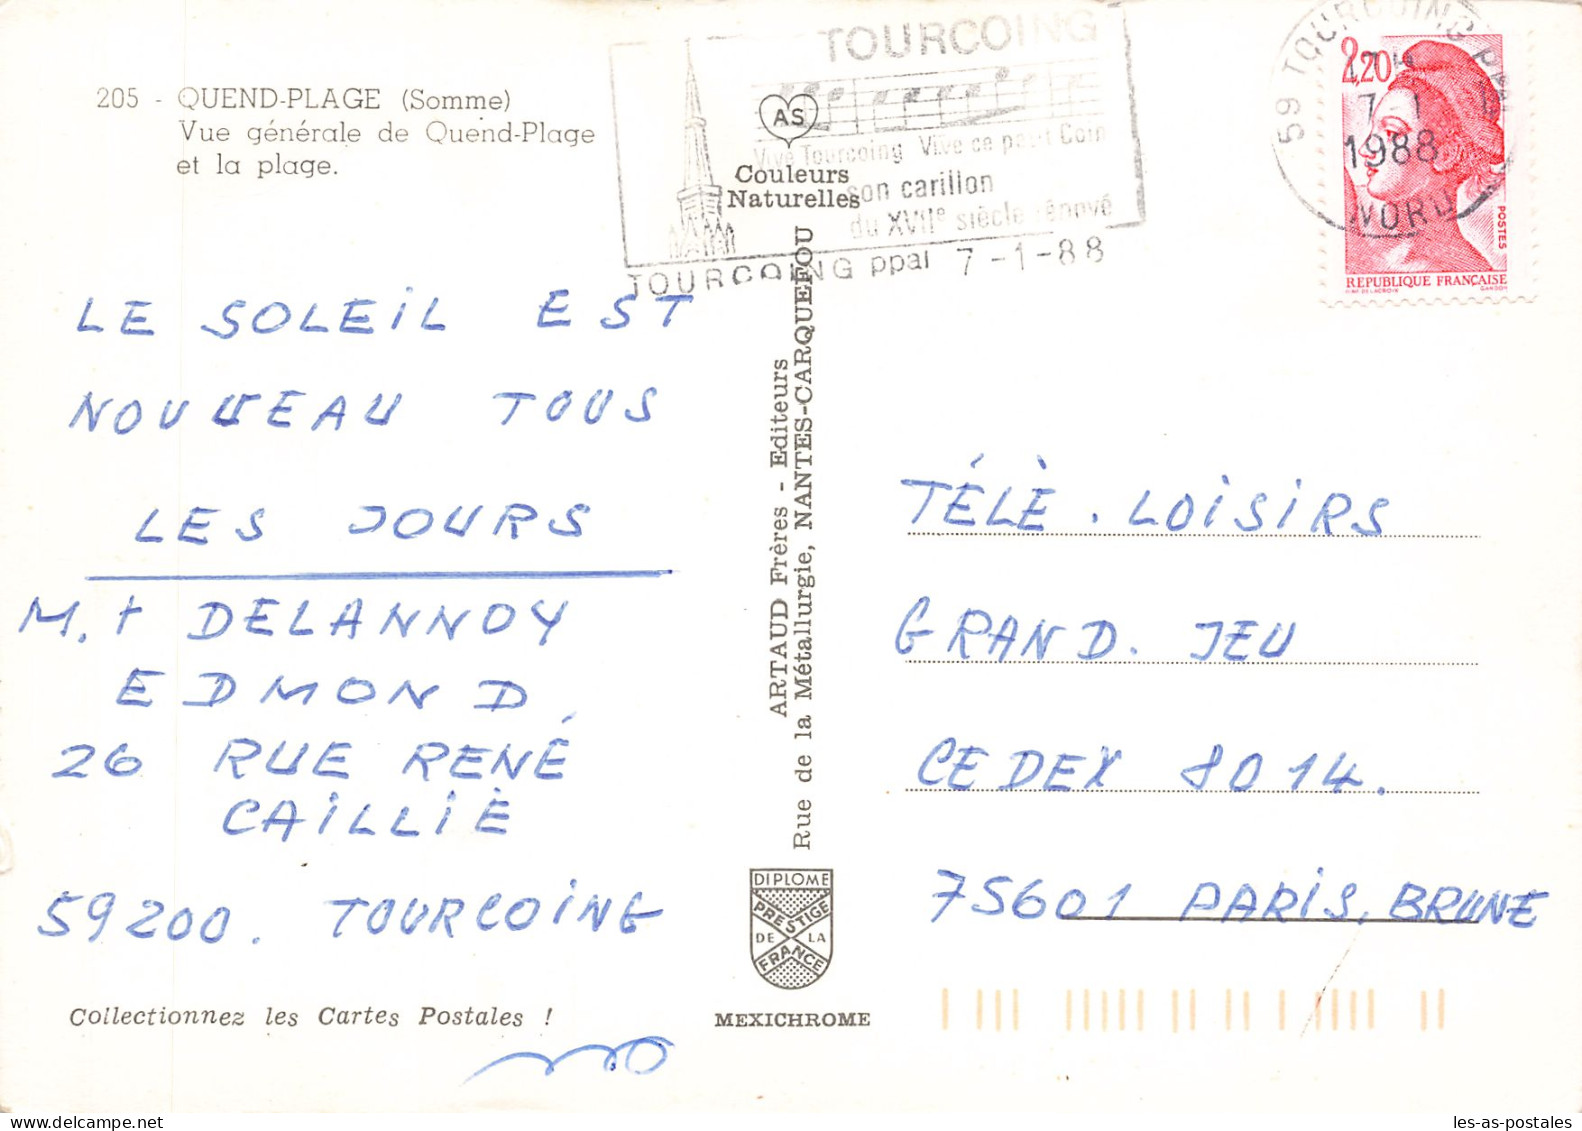 205 - QUEND-PLAGE (Somme)
Vue générale de Quend-Plage
et la plage.
TOURCOING
AS
Vive Tourcoing Vive ce petit Coin
Couleurs
Naturelles
son carillon
du XVIIe siècle rénové
TOURCOING ppal 7-1-88
59 TOURCOING PPAL
7-1
1988
NORD
2,20
POSTES
REPUBLIQUE FRANÇAISE
GANDON
LE SOLEIL EST
NOUVEAU TOUS
LES JOURS
M. + DELANNOY
EDMOND
26 RUE RENÉ
CAILLIÈ
59200. TOURCOING
Collectionnez les Cartes Postales !
ARTAUD Frères - Editeurs
Rue de la Métallurgie, NANTES-CARQUEFOU
DIPLOME
PRESTIGE
DE LA
FRANCE
MEXICHROME
TÉLÈ. LOISIRS
GRAND. JEU
CEDEX 8014.
75601 PARIS, BRUNE
les-as-postales.com